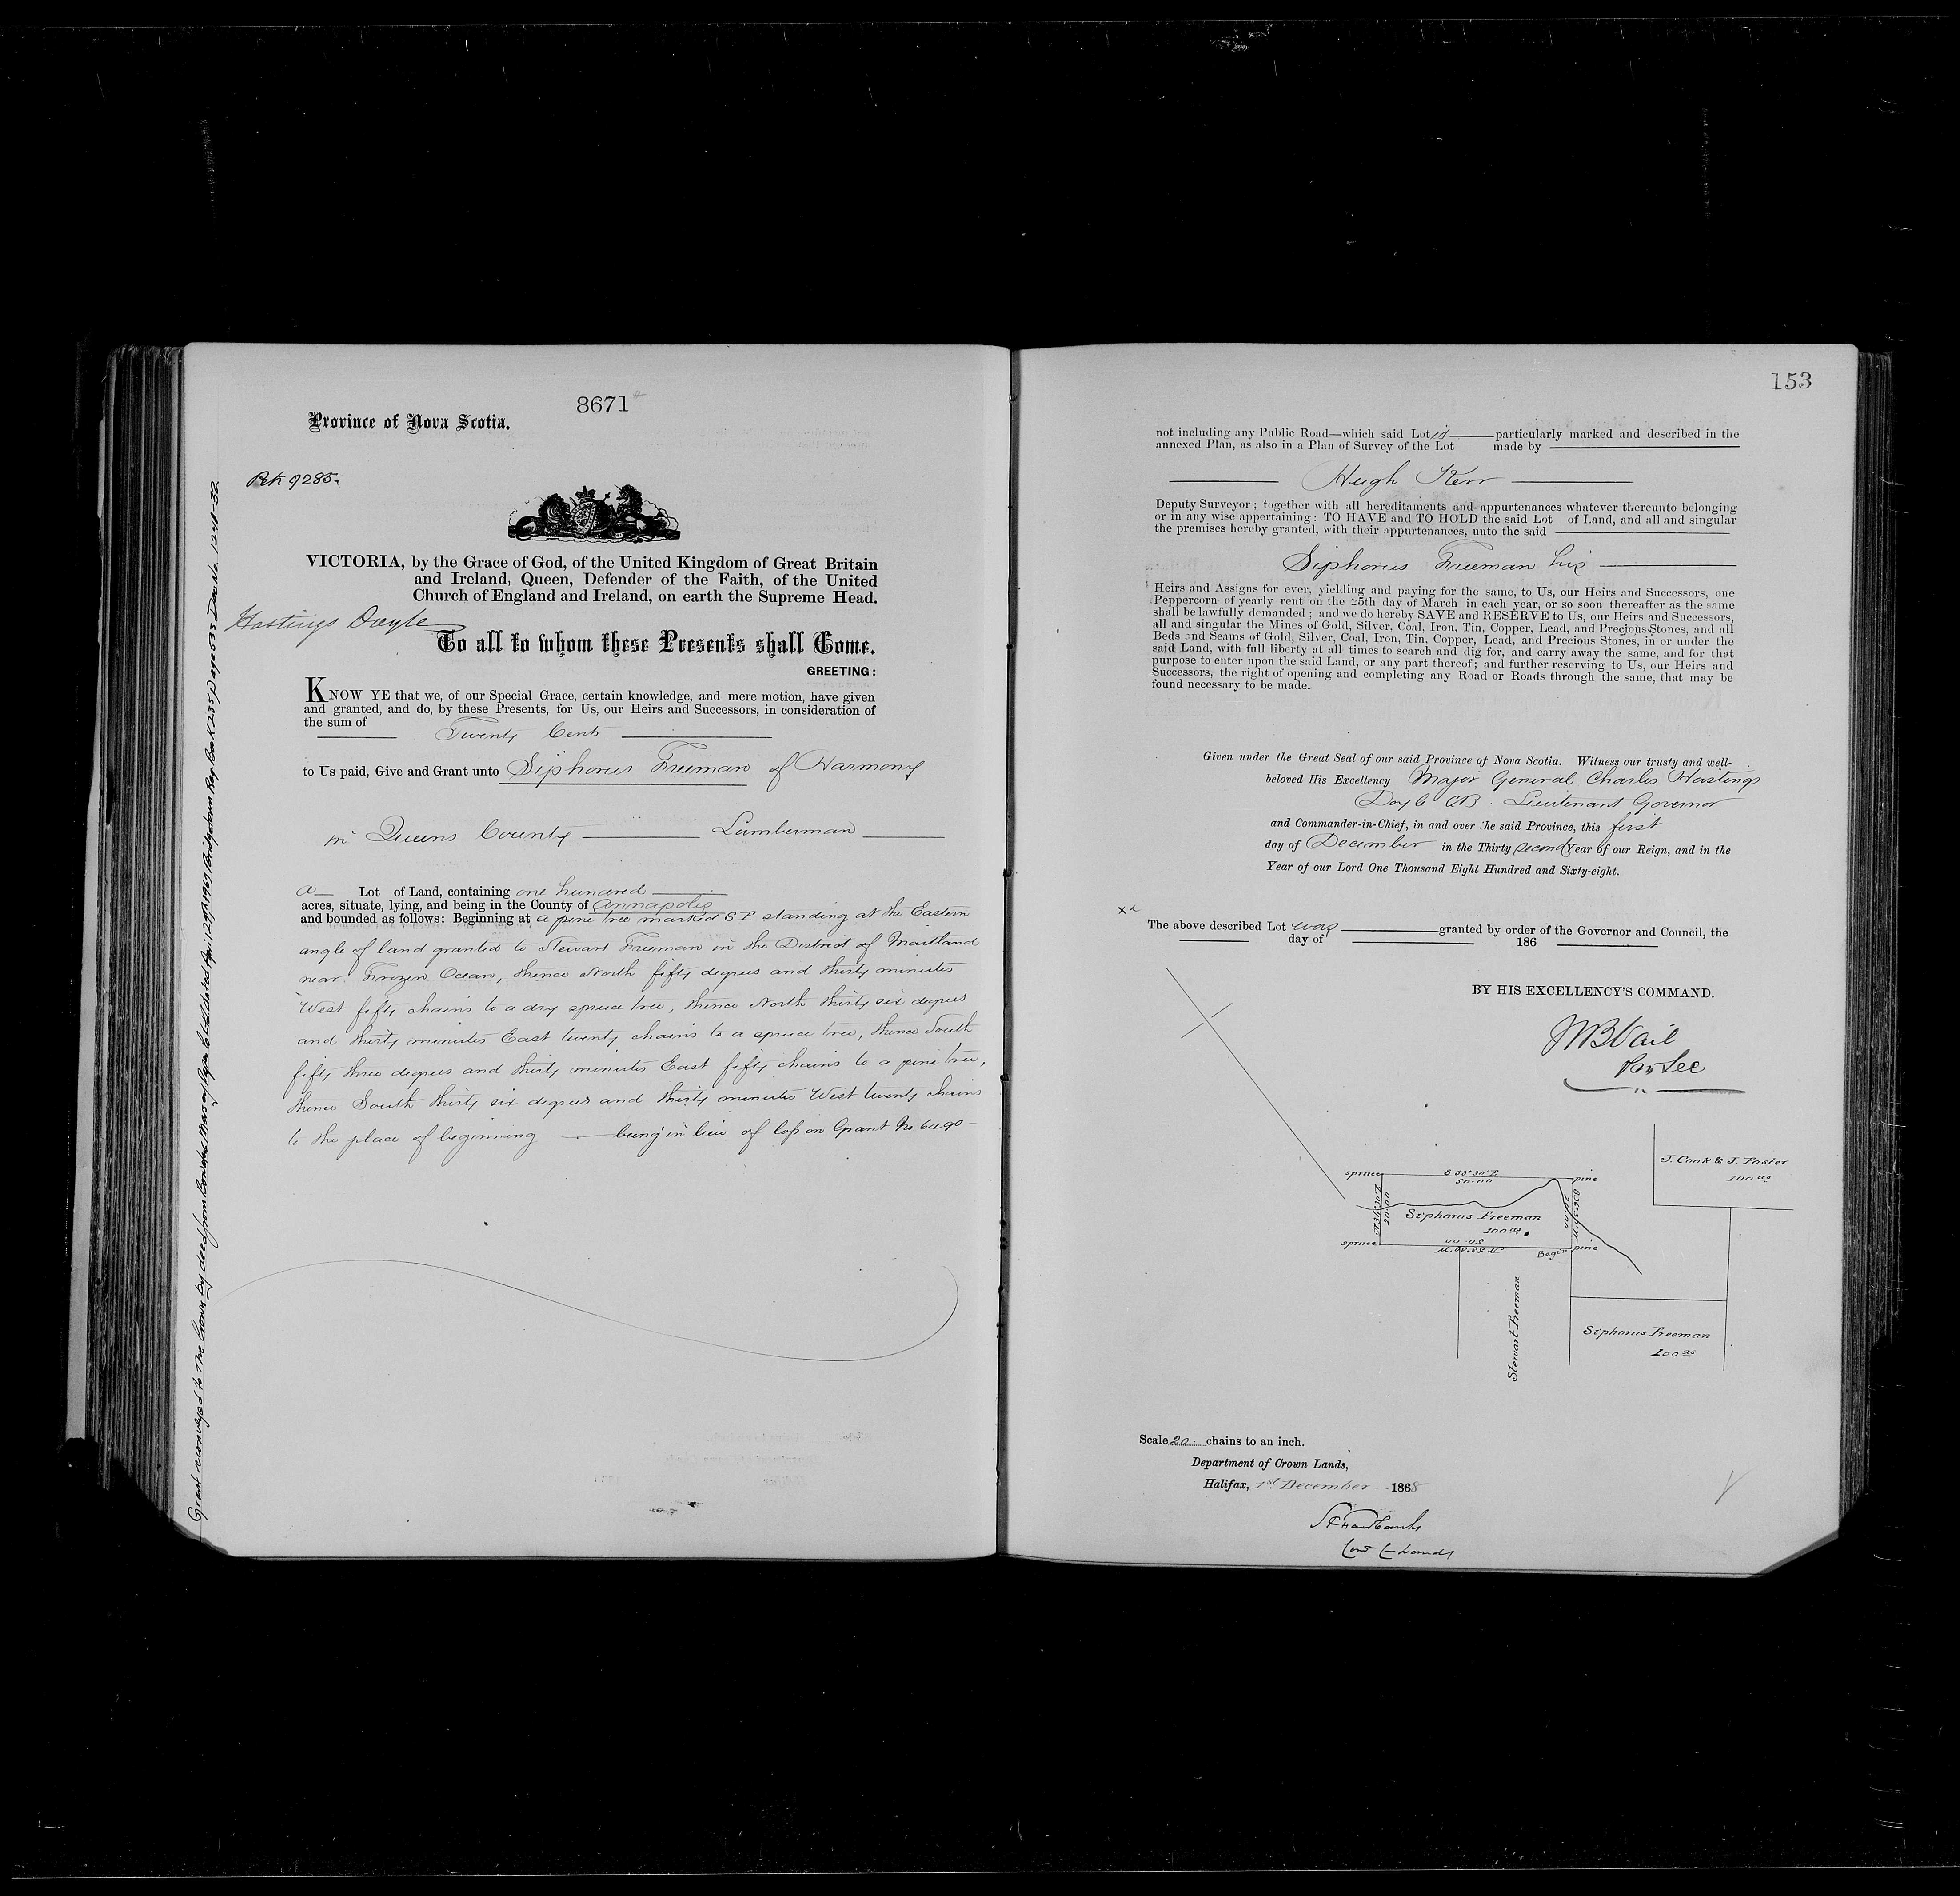 8671
Province of Nova Scotia.
Hastings Doyle
VICTORIA, by the Grace of God, of the United Kingdom of Great Britain
and Ireland, Queen, Defender of the Faith, of the United
Church of England and Ireland, on earth the Supreme Head.
To all to whom these Presents shall Come.
GREETING:
KNOW YE that we, of our Special Grace, certain knowledge, and mere motion, have given
and granted, and do, by these Presents, for Us, our Heirs and Successors, in consideration of
the sum of
Twenty Cents
to Us paid, Give and Grant unto Siphorus Freeman of Harmony
in Queens County Lumberman
a Lot of Land, containing one hundred
acres, situate, lying, and being in the County of Annapolis
and bounded as follows: Beginning at a pine tree marked S F standing at the Eastern
angle of land granted to Stewart Freeman in the District of Maitland
near Frozen Ocean, thence North fifty degrees and thirty minutes
West fifty chains to a dry spruce tree, thence North thirty six degrees
and thirty minutes East twenty chains to a spruce tree, thence South
fifty three degrees and thirty minutes East fifty chains to a pine tree,
thence South thirty six degrees and thirty minutes West twenty chains
to the place of beginning — being in lieu of loss on Grant No 6490
Grant reconveyed to The Crown by deed from Bowater Mersey Paper Co Ltd dated April 12th 1969 Bridgetown Reg. Book 235, Page 533 Doc No. 1241-32
153
not including any Public Road—which said Lot is particularly marked and described in the
annexed Plan, as also in a Plan of Survey of the Lot made by
Hugh Kerr
Deputy Surveyor; together with all hereditaments and appurtenances whatever thereunto belonging
or in any wise appertaining: TO HAVE and TO HOLD the said Lot of Land, and all and singular
the premises hereby granted, with their appurtenances, unto the said
Siphorus Freeman his
Heirs and Assigns for ever, yielding and paying for the same, to Us, our Heirs and Successors, one
Peppercorn of yearly rent on the 25th day of March in each year, or so soon thereafter as the same
shall be lawfully demanded; and we do hereby SAVE and RESERVE to Us, our Heirs and Successors,
all and singular the Mines of Gold, Silver, Coal, Iron, Tin, Copper, Lead, and Precious Stones, and all
Beds and Seams of Gold, Silver, Coal, Iron, Tin, Copper, Lead, and Precious Stones, in or under the
said Land, with full liberty at all times to search and dig for, and carry away the same, and for that
purpose to enter upon the said Land, or any part thereof; and further reserving to Us, our Heirs and
Successors, the right of opening and completing any Road or Roads through the same, that may be
found necessary to be made.
Given under the Great Seal of our said Province of Nova Scotia. Witness our trusty and well-
beloved His Excellency Major General Charles Hastings
Doyle CB. Lieutenant Governor
and Commander-in-Chief, in and over the said Province, this first
day of December in the Thirty second Year of our Reign, and in the
Year of our Lord One Thousand Eight Hundred and Sixty-eight.
The above described Lot was granted by order of the Governor and Council, the
day of 186
BY HIS EXCELLENCY'S COMMAND.
W B Vail
Prov Sec
J. Cook & J. Foster
100 as
spruce
S 53° 30' E
50.00
pine
N 36° 30' E
20.00
Siphorus Freeman
100 as
S 36° 30' W
20.00
spruce
50.00
N 53° 30' W
Begin
pine
Stewart Freeman
Siphorus Freeman
100 as
Scale 20 chains to an inch.
Department of Crown Lands,
Halifax, 1st December 1868